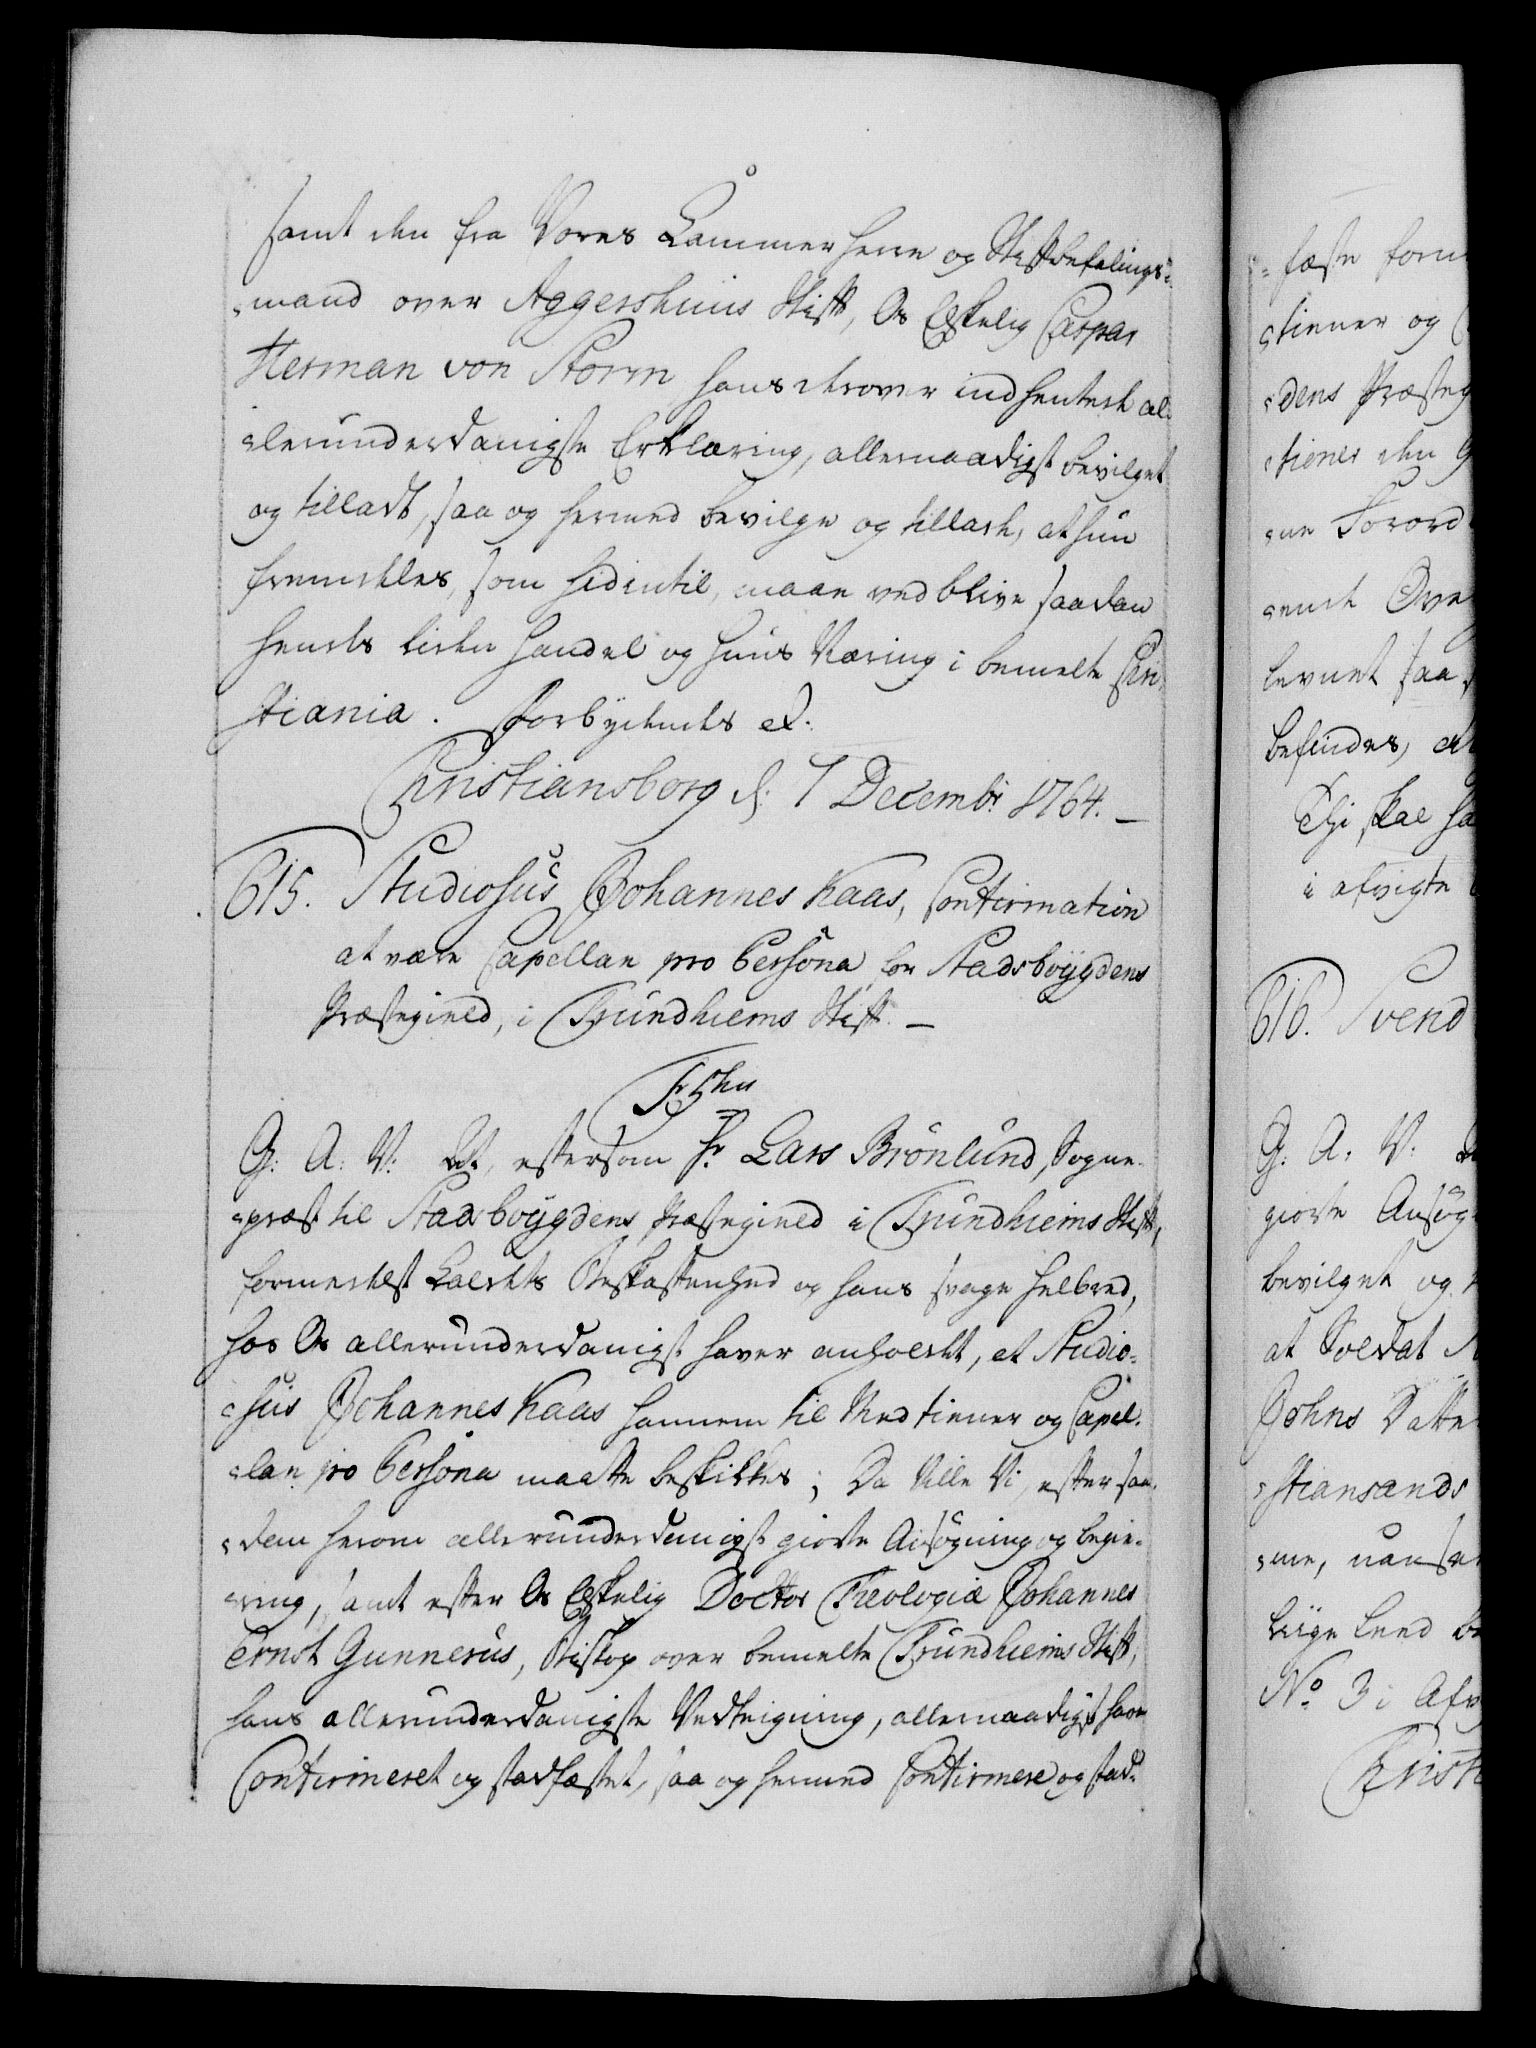 samt den fra Vores Cammerherre og Stiftbefalings-
mand over Aggershuus Stift, Os Elskelig Caspar
Herman von Storm hans derover indhentede al-
lerunderdanigste Erklæring, allernaadigst bevilget
og tilladt, saa og hermed bevilge og tillade, at hun
fremdeles, som hidentil, maae ved blive saadan
hendes liden Handel og Huus Næring i bemelte Chri-
stiania. Forbydendes etc.
Christiansborg d. 7 Decembr 1764.
615. Studiosus Johannes Kaas, Confirmation
at være Capellan pro Persona for Stadsbøygdens
Præstegield, i Trundhiems Stift.
G. A. V. eftersom Hr. Lars Brønlund, Sogne-
præst til Stadsbøygdens Præstegield i Trundhiems Stift,
formedelst Kaldets Beskaffenhed og hans svage Helbred,
hos Os allerunderdanigst haver anholdt, at Studio-
sus Johannes Kaas hannem til Medtiener og Capel-
lan pro Persona maatte beskikkes; Da Ville Vi, efter saa-
dan herom allerunderdanigst giorte Ansøgning og begie-
ring, samt efter Os Elskelig Doctor Theologiæ Johannes
Ernst Gunnerus, Biskop over bemelte Trundhiems Stift,
hans allerunderdanigste Vedteigning, allernaadigst have
Confirmeret og stadfæstet, saa og hermed Confirmere og stad-
fæste
tiener og
dens Præsteg
tiener den
ne Forord
ende
levnet saa
befindes,
Thi skal
i afvigte
616. Svend
G. A. V.
giorte Ansøg
bevilget og
at Soldat
Johns Datte
stiansands
me,
No 3 i Afv
Christ